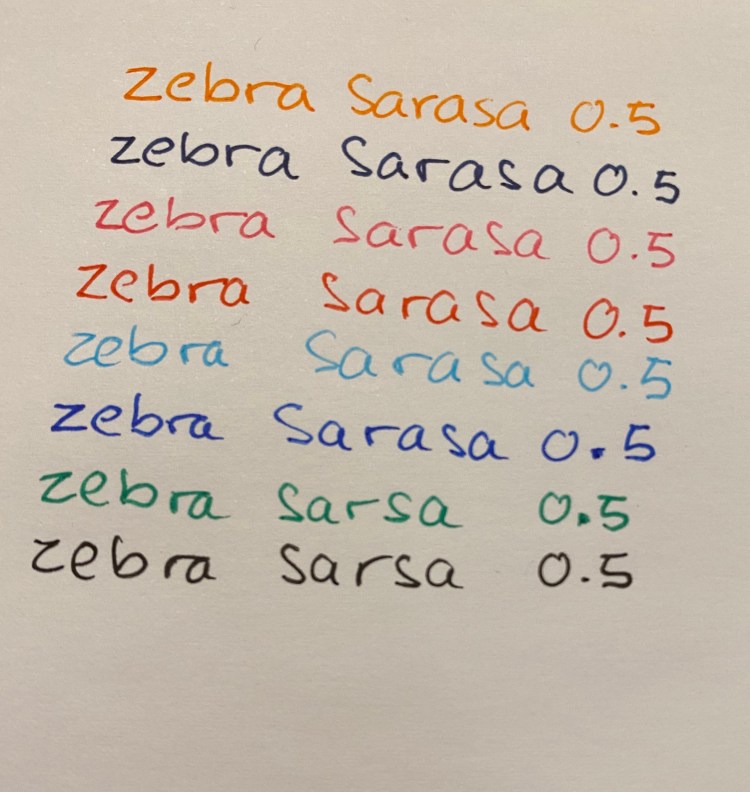 zebra Sarasa 0.5
zebra Sarasa 0.5
zebra Sarasa 0.5
zebra Sarasa 0.5
zebra Sarasa 0.5
zebra Sarasa 0.5
zebra Sarsa 0.5
zebra Sarsa 0.5